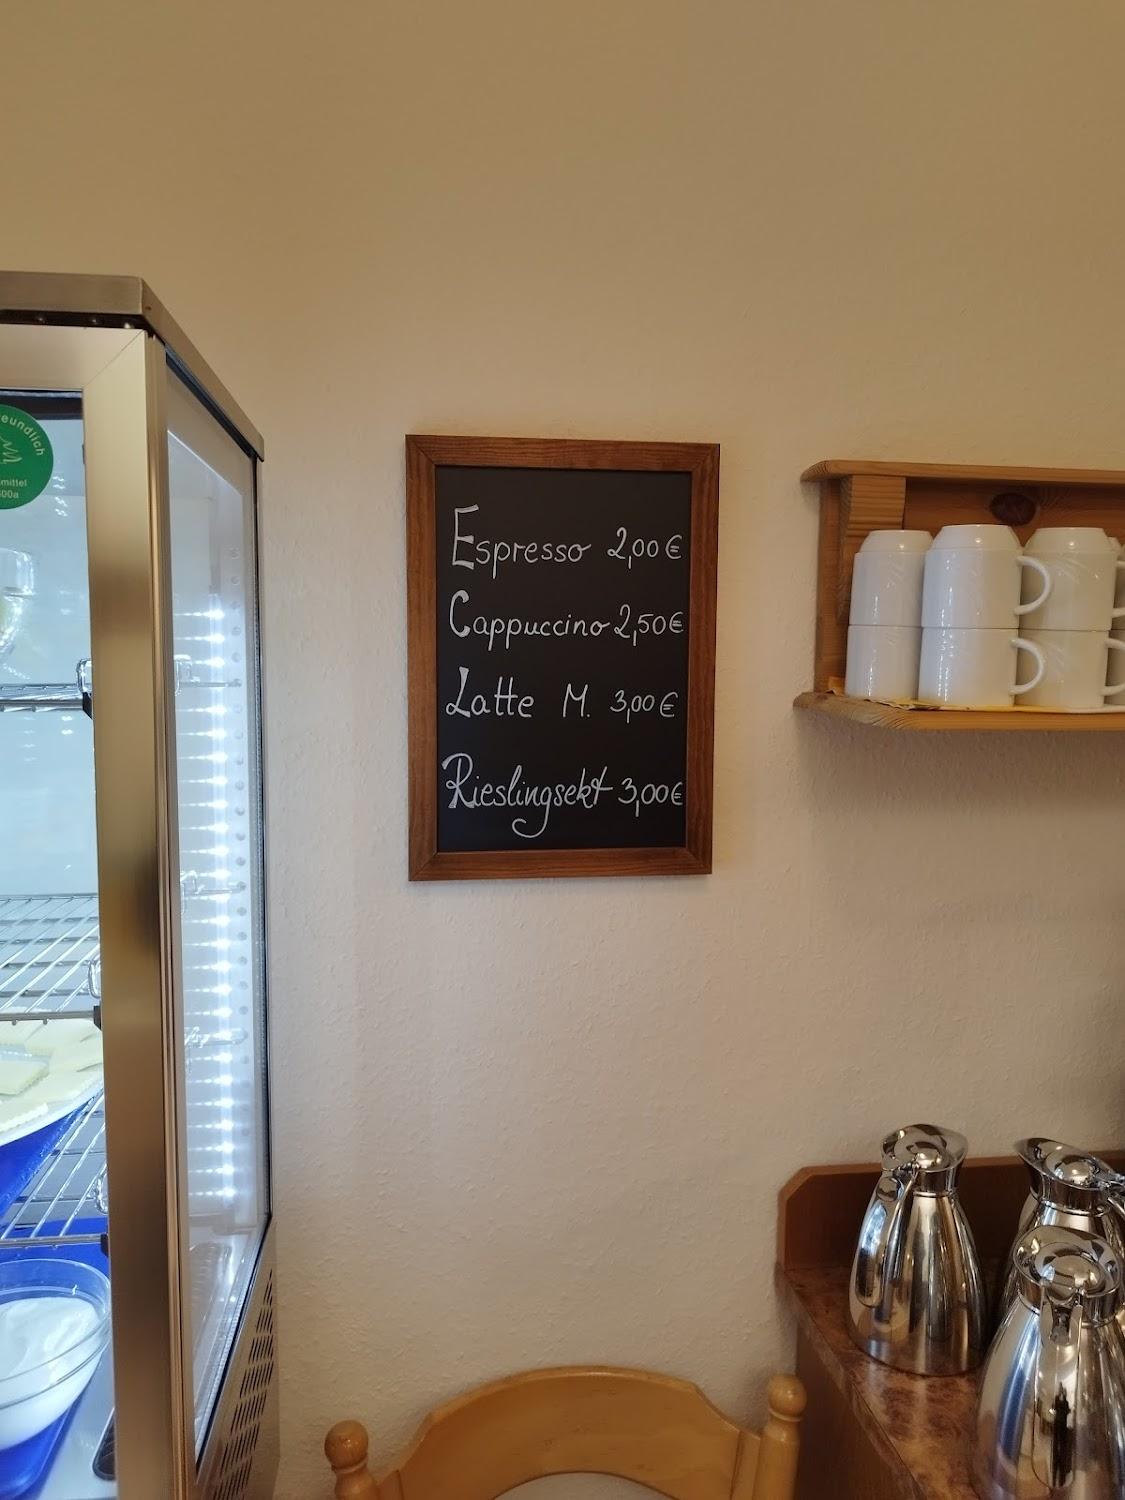 Espresso 2,00 €
Cappuccino 2,50 €
Latte M. 3,00 €
Rieslingsekt 3,00 €